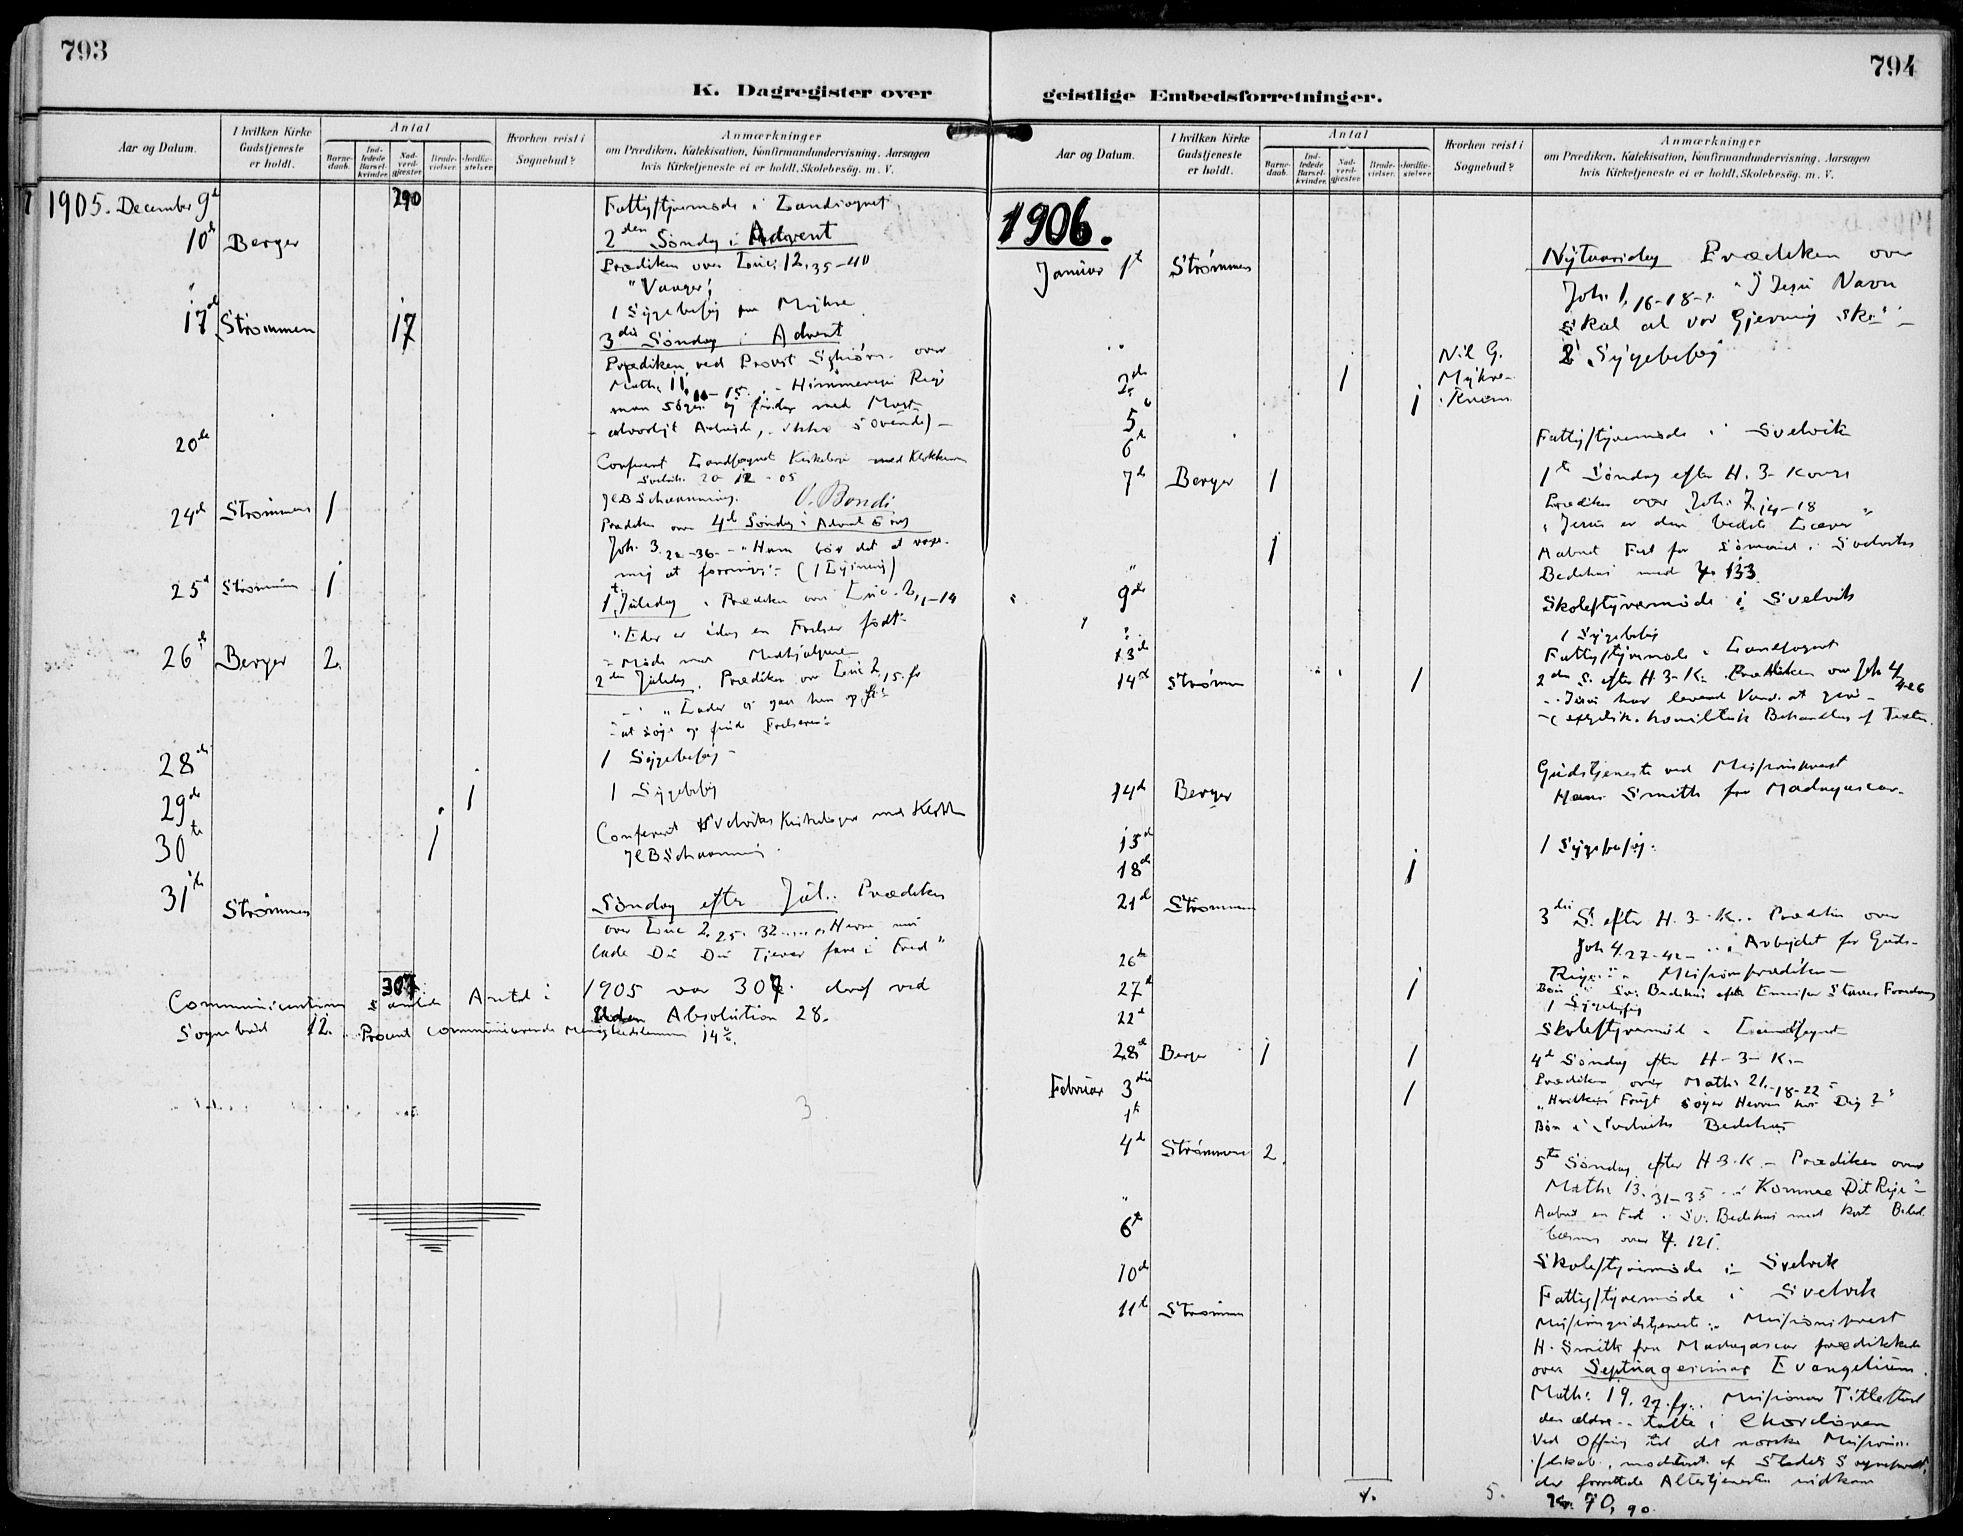 793
K. Dagregister over
Aar og Datum.
I hvilken Kirke Gudstjeneste er holdt.
Antal
Barnedaab.
Indledede Barselkvinder.
Nadverdgjæster.
Brudevielser.
Jordfæstelser.
Hvorhen reist i Sognebud?
Anmærkninger
om Prædiken, Katekisation, Konfirmandundervisning. Aarsagen
hvis Kirketjeneste ei er holdt. Skolebesøg. m. V.
1905. December 9d 290 Fattigstyremøde i Landsognet
10d Berger 2den Søndag i Advent
Prædiken over Luc. 12, 35-40
"Vaager!
1 Sygebesøg paa Myhre
17d Strømmen 17 3die Søndag i Advent
Prædiken ved Provst over
Math. 11, 11-15. Himmeriges Rige
man søger og finder med
alvorligt Arbeide,
20de Conferent Landsognet Kirkebog med Klokkeren
Svelvik 20-12-05
24d Strømmen 1 HBSchanning. O. Bondi
Prædiken over 4d Søndag i Advent
Joh. 3. - 36. - "Ham bør det at voxe
mig at forringes" - (1 Lysning)
25d Strømmen 1 1ste Juledag. Prædiken over Luc. 2, 1-14
"Eder er idag en Frelser født"
Møde med Medhjælperne
26d Berger 2. 2den Juledag. Prædiken over Luc 2, 15. fg
"Lader os gaa hen og
at søge og finde Frelseren"
28de 1 Sygebesøg -
29de 1 1 Sygebesøg
30te 1 Conferent Svelviks Kirkebøger med Klokk
HBSchanning
31te Strømmen Søndag efter Jul. Prædiken
over Luc 2, 25-32 Herre nu
lade Du Din Tjener fare i Fred"
307
Communicanternes samlede Antal i 1905 var 307. deraf ved
uden Absolution 28.
Sognebud 12. Procent communicerende Menighedslemmer 14%.
794
geistlige Embedsforretninger.
Aar og Datum.
I hvilken Kirke Gudstjeneste er holdt.
Antal
Barnedaab.
Indledede Barselkvinder.
Nadverdgjæster.
Brudevielser.
Jordfæstelser.
Hvorhen reist i Sognebud?
Anmærkninger
om Prædiken, Katekisation, Konfirmandundervisning. Aarsagen
hvis Kirketjeneste ei er holdt. Skolebesøg. m. V.
1906.
Januar 1te Strømmen Nytaarsdag Prædiken over
Joh. 1, 16-18 "I Jesu Navn
skal al vor Gjerning ske"
Nil G. 2 Sygebesøg
2de 1 Myhre
5 1
6te Fattigstyremøde i Svelvik
7de Berger 1 1te Søndag efter H. 3 Konger
Prædiken over Joh. 7, 14-18
"Jesus er den bedste Lærer"
1 Aabnet Fest for Sømænd i Svelviks
Bedehus med ψ 133
9de Skolestyremøde i Svelvik
1 Sygebesøg
13de Fattigstyremøde i Landsognet
14de Strømmen 1 2den S. efter H. 3 K. Prædiken over Joh 4, 4-26
Jesus har levende Vand at give
(exegetisk homiletisk Behandling af Texten.
14d Berger Gudstjeneste ved Missionsprest
Hans Smith fra Madagascar.
15d 1 Sygebesøg.
18de 1
21d Strømmen 3die S. efter H. 3. K. Prædiken over
Joh 4, 27-42 "Arbejdet for Guds
26de Rige" Missionsprædiken
27d 1 Sv. Bedehus efter Foredrag
1 Sygebesøg
22d Skolestyremøde i Landsognet
28d Berger 1 1 4d Søndag efter H-3-K.
Februar 3die 1 Prædiken over Math. 21, 18-22
"Hvilken Frugt søger Herren hos Dig?"
1te Bøn i Svelviks Bedehus
4d Strømmen 2. 5te Søndag efter H 3. K. - Prædiken over
Math. 13, 31-35. "Komme Dit Rige"
Aabnet en Fest i Sv. Bedehus med kort
over ψ. 121.
6te Skolestyremøde i Svelvik
10de Fattigstyremøde i Svelvik
11te Strømmen Missionsgudstjeneste: Missionsprest
H. Smith fra Madagascar prædikede
over Septuagesimas Evangelium.
Math. 19. 27. fg. Missionær Titlestad
den ældre talte i Chordøren
Ved Offring til det norske Missions
selskab, modtaget af Stedets Sogneprest,
der forrettede Altertjenesten indkom
Kr. 70,90.
4.
5.